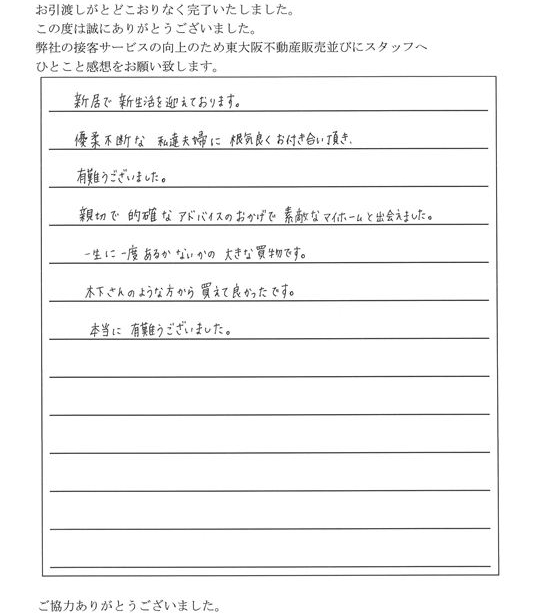 お引渡しがとどこおりなく完了いたしました。
この度は誠にありがとうございました。
弊社の接客サービスの向上のため東大阪不動産販売並びにスタッフへ
ひとこと感想をお願い致します。
新居で 新生活を迎えております。
優柔不断な 私達夫婦に 根気良くお付き合い頂き、
有難うございました。
親切で 的確な アドバイスのおかげで 素敵なマイホームと出会えました。
一生に一度あるかないかの 大きな買物です。
木下さんのような方から 買えて良かったです。
本当に 有難うございました。
ご協力ありがとうございました。